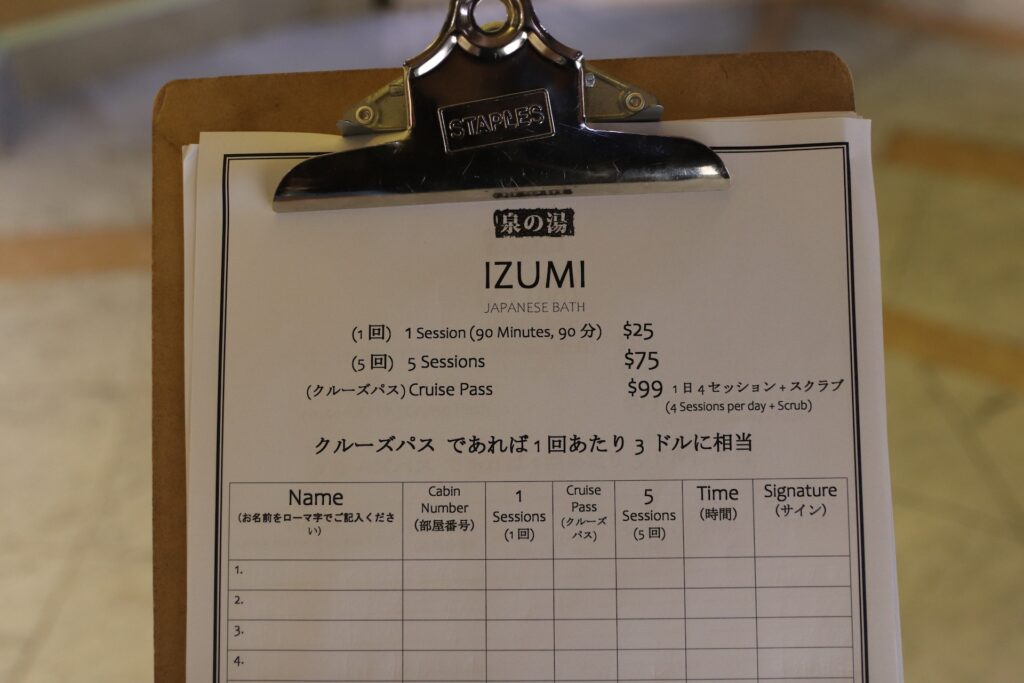 STAPLES
泉の湯
IZUMI
JAPANESE BATH
(1回) 1 Session (90 Minutes, 90 分) $25
(5回) 5 Sessions $75
(クルーズパス) Cruise Pass $99 1日4セッション+スクラブ
(4 Sessions per day + Scrub)
クルーズパス であれば1回あたり 3 ドルに相当
Name
(お名前をローマ字でご記入くださ
い)
Cabin
Number
(部屋番号)
1
Sessions
(1回)
Cruise
Pass
(クルーズ
パス)
5
Sessions
(5回)
Time
(時間)
Signature
(サイン)
1.
2.
3.
4.